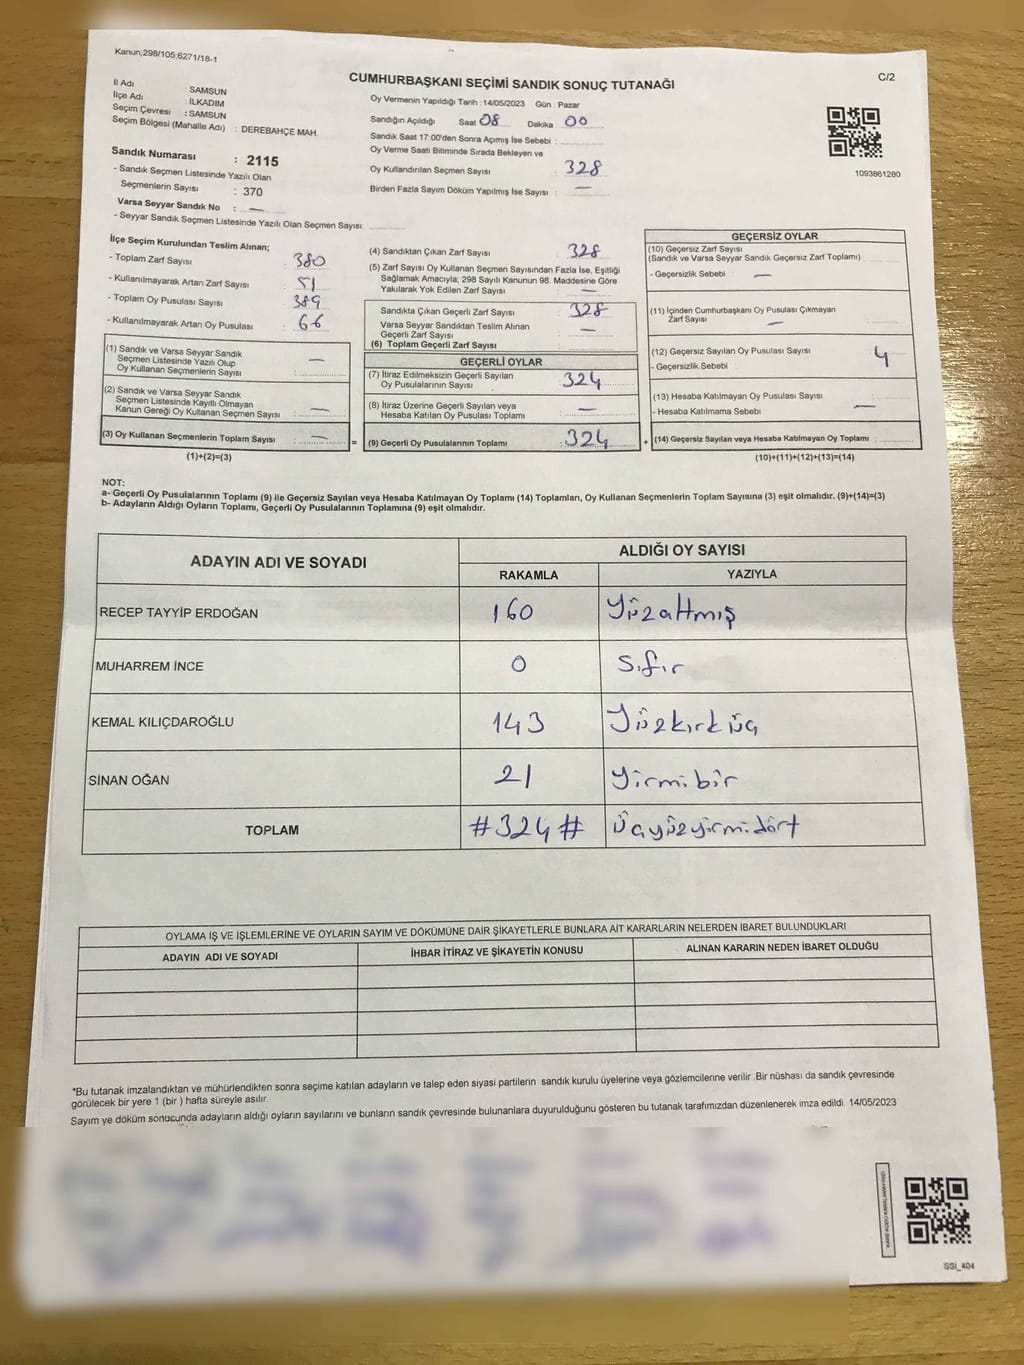 Kanun;298/105;6271/18-1
C/2
CUMHURBAŞKANI SEÇİMİ SANDIK SONUÇ TUTANAĞI
İl Adı : SAMSUN
İlçe Adı : İLKADIM
Seçim Çevresi : SAMSUN
Seçim Bölgesi (Mahalle Adı) : DEREBAHÇE MAH.
Oy Vermenin Yapıldığı Tarih : 14/05/2023 Gün : Pazar
Sandığın Açıldığı Saat 08 Dakika 00
Sandık Saat 17:00'den Sonra Açımış İse Sebebi :
Oy Verme Saati Bitiminde Sırada Bekleyen ve
Oy Kullandırılan Seçmen Sayısı : 328
Birden Fazla Sayım Döküm Yapılmış İse Sayısı : —
1093861280
Sandık Numarası : 2115
- Sandık Seçmen Listesinde Yazılı Olan
Seçmenlerin Sayısı : 370
Varsa Seyyar Sandık No : —
- Seyyar Sandık Seçmen Listesinde Yazılı Olan Seçmen Sayısı:
İlçe Seçim Kurulundan Teslim Alınan;
- Toplam Zarf Sayısı : 380
- Kullanılmayarak Artan Zarf Sayısı : 51
- Toplam Oy Pusulası Sayısı : 389
- Kullanılmayarak Artan Oy Pusulası : 66
(1) Sandık ve Varsa Seyyar Sandık
Seçmen Listesinde Yazılı Olup
Oy Kullanan Seçmenlerin Sayısı : —
(2) Sandık ve Varsa Seyyar Sandık
Seçmen Listesinde Kayıtlı Olmayan
Kanun Gereği Oy Kullanan Seçmen Sayısı : —
(3) Oy Kullanan Seçmenlerin Toplam Sayısı : —
(1)+(2)=(3)
=
(4) Sandıktan Çıkan Zarf Sayısı : 328
(5) Zarf Sayısı Oy Kullanan Seçmen Sayısından Fazla İse, Eşitliği
Sağlamak Amacıyla; 298 Sayılı Kanunun 98. Maddesine Göre
Yakılarak Yok Edilen Zarf Sayısı : —
Sandıkta Çıkan Geçerli Zarf Sayısı : 328
Varsa Seyyar Sandıktan Teslim Alınan
Geçerli Zarf Sayısı : —
(6) Toplam Geçerli Zarf Sayısı :
GEÇERLİ OYLAR
(7) İtiraz Edilmeksizin Geçerli Sayılan
Oy Pusulalarının Sayısı : 324
(8) İtiraz Üzerine Geçerli Sayılan veya
Hesaba Katılan Oy Pusulası Toplamı : —
(9) Geçerli Oy Pusulalarının Toplamı : 324
+
GEÇERSİZ OYLAR
(10) Geçersiz Zarf Sayısı
(Sandık ve Varsa Seyyar Sandık Geçersiz Zarf Toplamı) :
- Geçersizlik Sebebi : —
(11) İçinden Cumhurbaşkanı Oy Pusulası Çıkmayan
Zarf Sayısı : —
(12) Geçersiz Sayılan Oy Pusulası Sayısı : 4
- Geçersizlik Sebebi :
(13) Hesaba Katılmayan Oy Pusulası Sayısı :
- Hesaba Katılmama Sebebi : —
(14) Geçersiz Sayılan veya Hesaba Katılmayan Oy Toplamı :
(10)+(11)+(12)+(13)=(14)
NOT:
a- Geçerli Oy Pusulalarının Toplamı (9) ile Geçersiz Sayılan veya Hesaba Katılmayan Oy Toplamı (14) Toplamları, Oy Kullanan Seçmenlerin Toplam Sayısına (3) eşit olmalıdır. (9)+(14)=(3)
b- Adayların Aldığı Oyların Toplamı, Geçerli Oy Pusulalarının Toplamına (9) eşit olmalıdır.
ADAYIN ADI VE SOYADI
ALDIĞI OY SAYISI
RAKAMLA YAZIYLA
RECEP TAYYİP ERDOĞAN 160 Yüzaltmış
MUHARREM İNCE 0 Sıfır
KEMAL KILIÇDAROĞLU 143 Yüzkırküç
SİNAN OĞAN 21 Yirmibir
TOPLAM #324# Üçyüzyirmidört
OYLAMA İŞ VE İŞLEMLERİNE VE OYLARIN SAYIM VE DÖKÜMÜNE DAİR ŞİKAYETLERLE BUNLARA AİT KARARLARIN NELERDEN İBARET BULUNDUKLARI
ADAYIN ADI VE SOYADI İHBAR İTİRAZ VE ŞİKAYETİN KONUSU ALINAN KARARIN NEDEN İBARET OLDUĞU
*Bu tutanak imzalandıktan ve mühürlendikten sonra seçime katılan adayların ve talep eden siyasi partilerin sandık kurulu üyelerine veya gözlemcilerine verilir .Bir nüshası da sandık çevresinde
görülecek bir yere 1 (bir ) hafta süreyle asılır.
Sayım ve döküm sonucunda adayların aldığı oyların sayılarını ve bunların sandık çevresinde bulunanlara duyurulduğunu gösteren bu tutanak tarafımızdan düzenlenerek imza edildi. 14/05/2023
KARE KODU KARALAMAYINIZ!
SSI_404